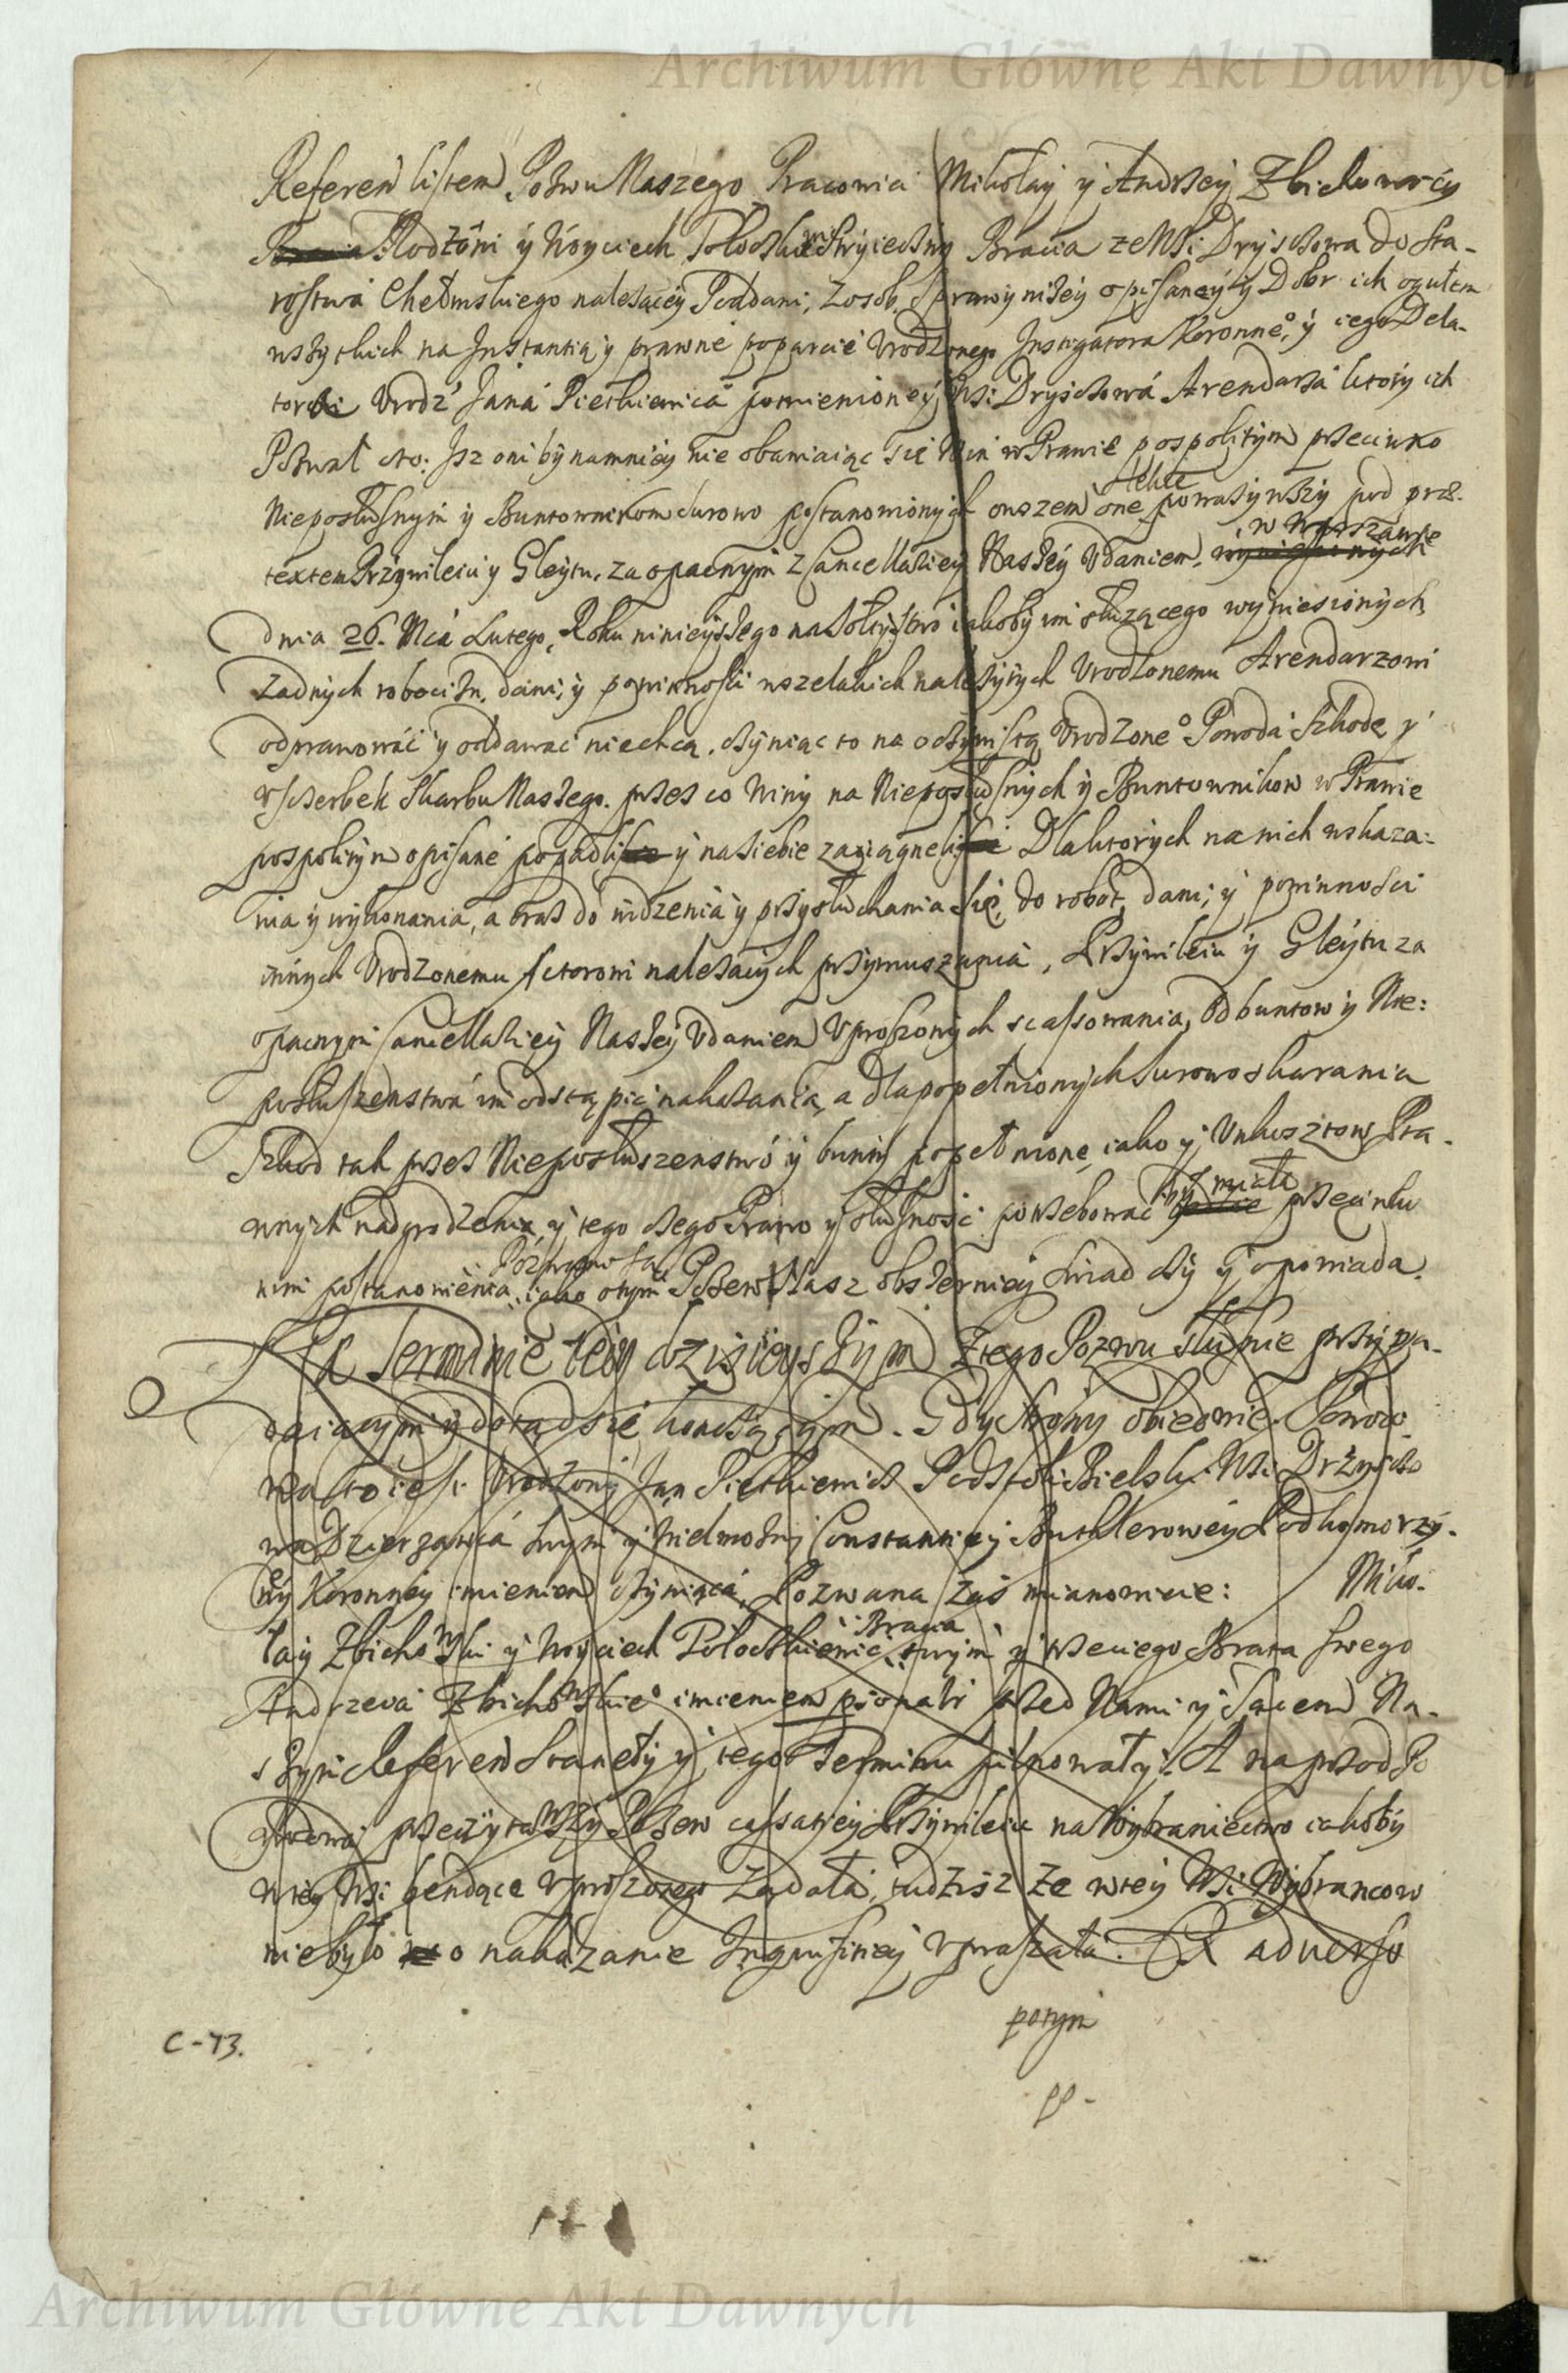 Archiwum Główne Akt Dawnych
Referen listem Pozwu Naszego Pracowici Mikołay y Andrzey Zbichowscy
Bracia Rodzoni y Woyciech Stryieczny Bracia ze Wsi Dryszczowa do Sta-
rostwa Chełmskiego należącey Poddani, z osob, sprawy niżey opisaney y Dobr ich ogułem
wszytkich na Instantią y prawne poparcie Vrodzonego Instigatora Koronneo, y iego Dela-
tora Vrodz Jana Pietkiewica pomienioney Wsi Dryszczowa Arendarza ktory ich
Pozwał oto: Isz oni bynamniey nie obawiaiąc się Win w Prawie pospolitym przeciwko
Nieposłusznym y Buntownikom surowo postanowionych owszem one lekce poważywszy pod prae-
textem Przywileiu y Gleytu, za opacznym Cancellariey Naszey Vdaniem, w Warszawie
dnia 26. Mca Lutego, Roku ninieyszego na Sołtystwo iakoby im służącego wyniesionych
żadnych robocizn, dani, y powinności wszelakich należytych Vrodzonemu Arendarzowi
odprawować y oddawać niechcą, czyniąc to na oczywistą Vrodzoneo Powoda Szkodę y
vszczerbek Skarbu Naszego. przez co Winy na Nieposłusznych y Buntownikow w Prawie
pospolitym opisane popadli y na siebie zaciągneli Dla ktorych na nich wskaza-
nia y wykonania, a oraz do widzenia y przysłuchania się, do robot, dani, y powinności
innych Vrodzonemu Actorowi należących przymuszania, Przywileiu y Gleytu za
opacznym Cancellariey Naszey Vdaniem Vproszonych scassowania, Od buntow y Nie-
posłuszenstwa im odstąpić nakazania, a dla popełnionych surowo skarania
Szkod tak przez Nieposłuszenstwo y bunty popełnione iako y Vnkosztow Pra-
wnych nadgrodzenia, y tego czego Prawo y słuszność potrzebować by miała przeciwko
nim postanowienia, Pozwano są iako o tym Pozew Nasz obszerniey swiadczy y opowiada.
Na Terminie tedy dzisieyszym z tego Pozwu słusznie przypa-
daiącym y dotąd się kontynuiącym. Gdy strony obiedwie Powodo-
wa to iest Vrodzony Jan Pietkiewicz Podstoli Bielski Wsi Dryszczo
wa Dzierżawca swym y Wielmożney Constantiey Buthlerowey Podkomorzy-
ney Koronney imieniem czyniąca, Pozwana zaś mianowicie: Miko-
łay Zbichowski y Woyciech Bracia swym y trzeciego Brata swego
Andrzeia Zbichowskieo imieniem przed Nami y Sądem Na-
szym Referen Staneły y tego Terminu pilnowały. A naprzod Po
wodowa przeczytawszy Pozew cassatiey Przywileiu na Wybraniectwo iakoby
w tey Wsi będące Vproszonego żądała, tudzisz że w tey Wsi Wybrancow
niebyło o nakazanie Inquisitiey Vpraszała. Ex adverso
potym
C-73.
pp-
Archiwum Główne Akt Dawnych